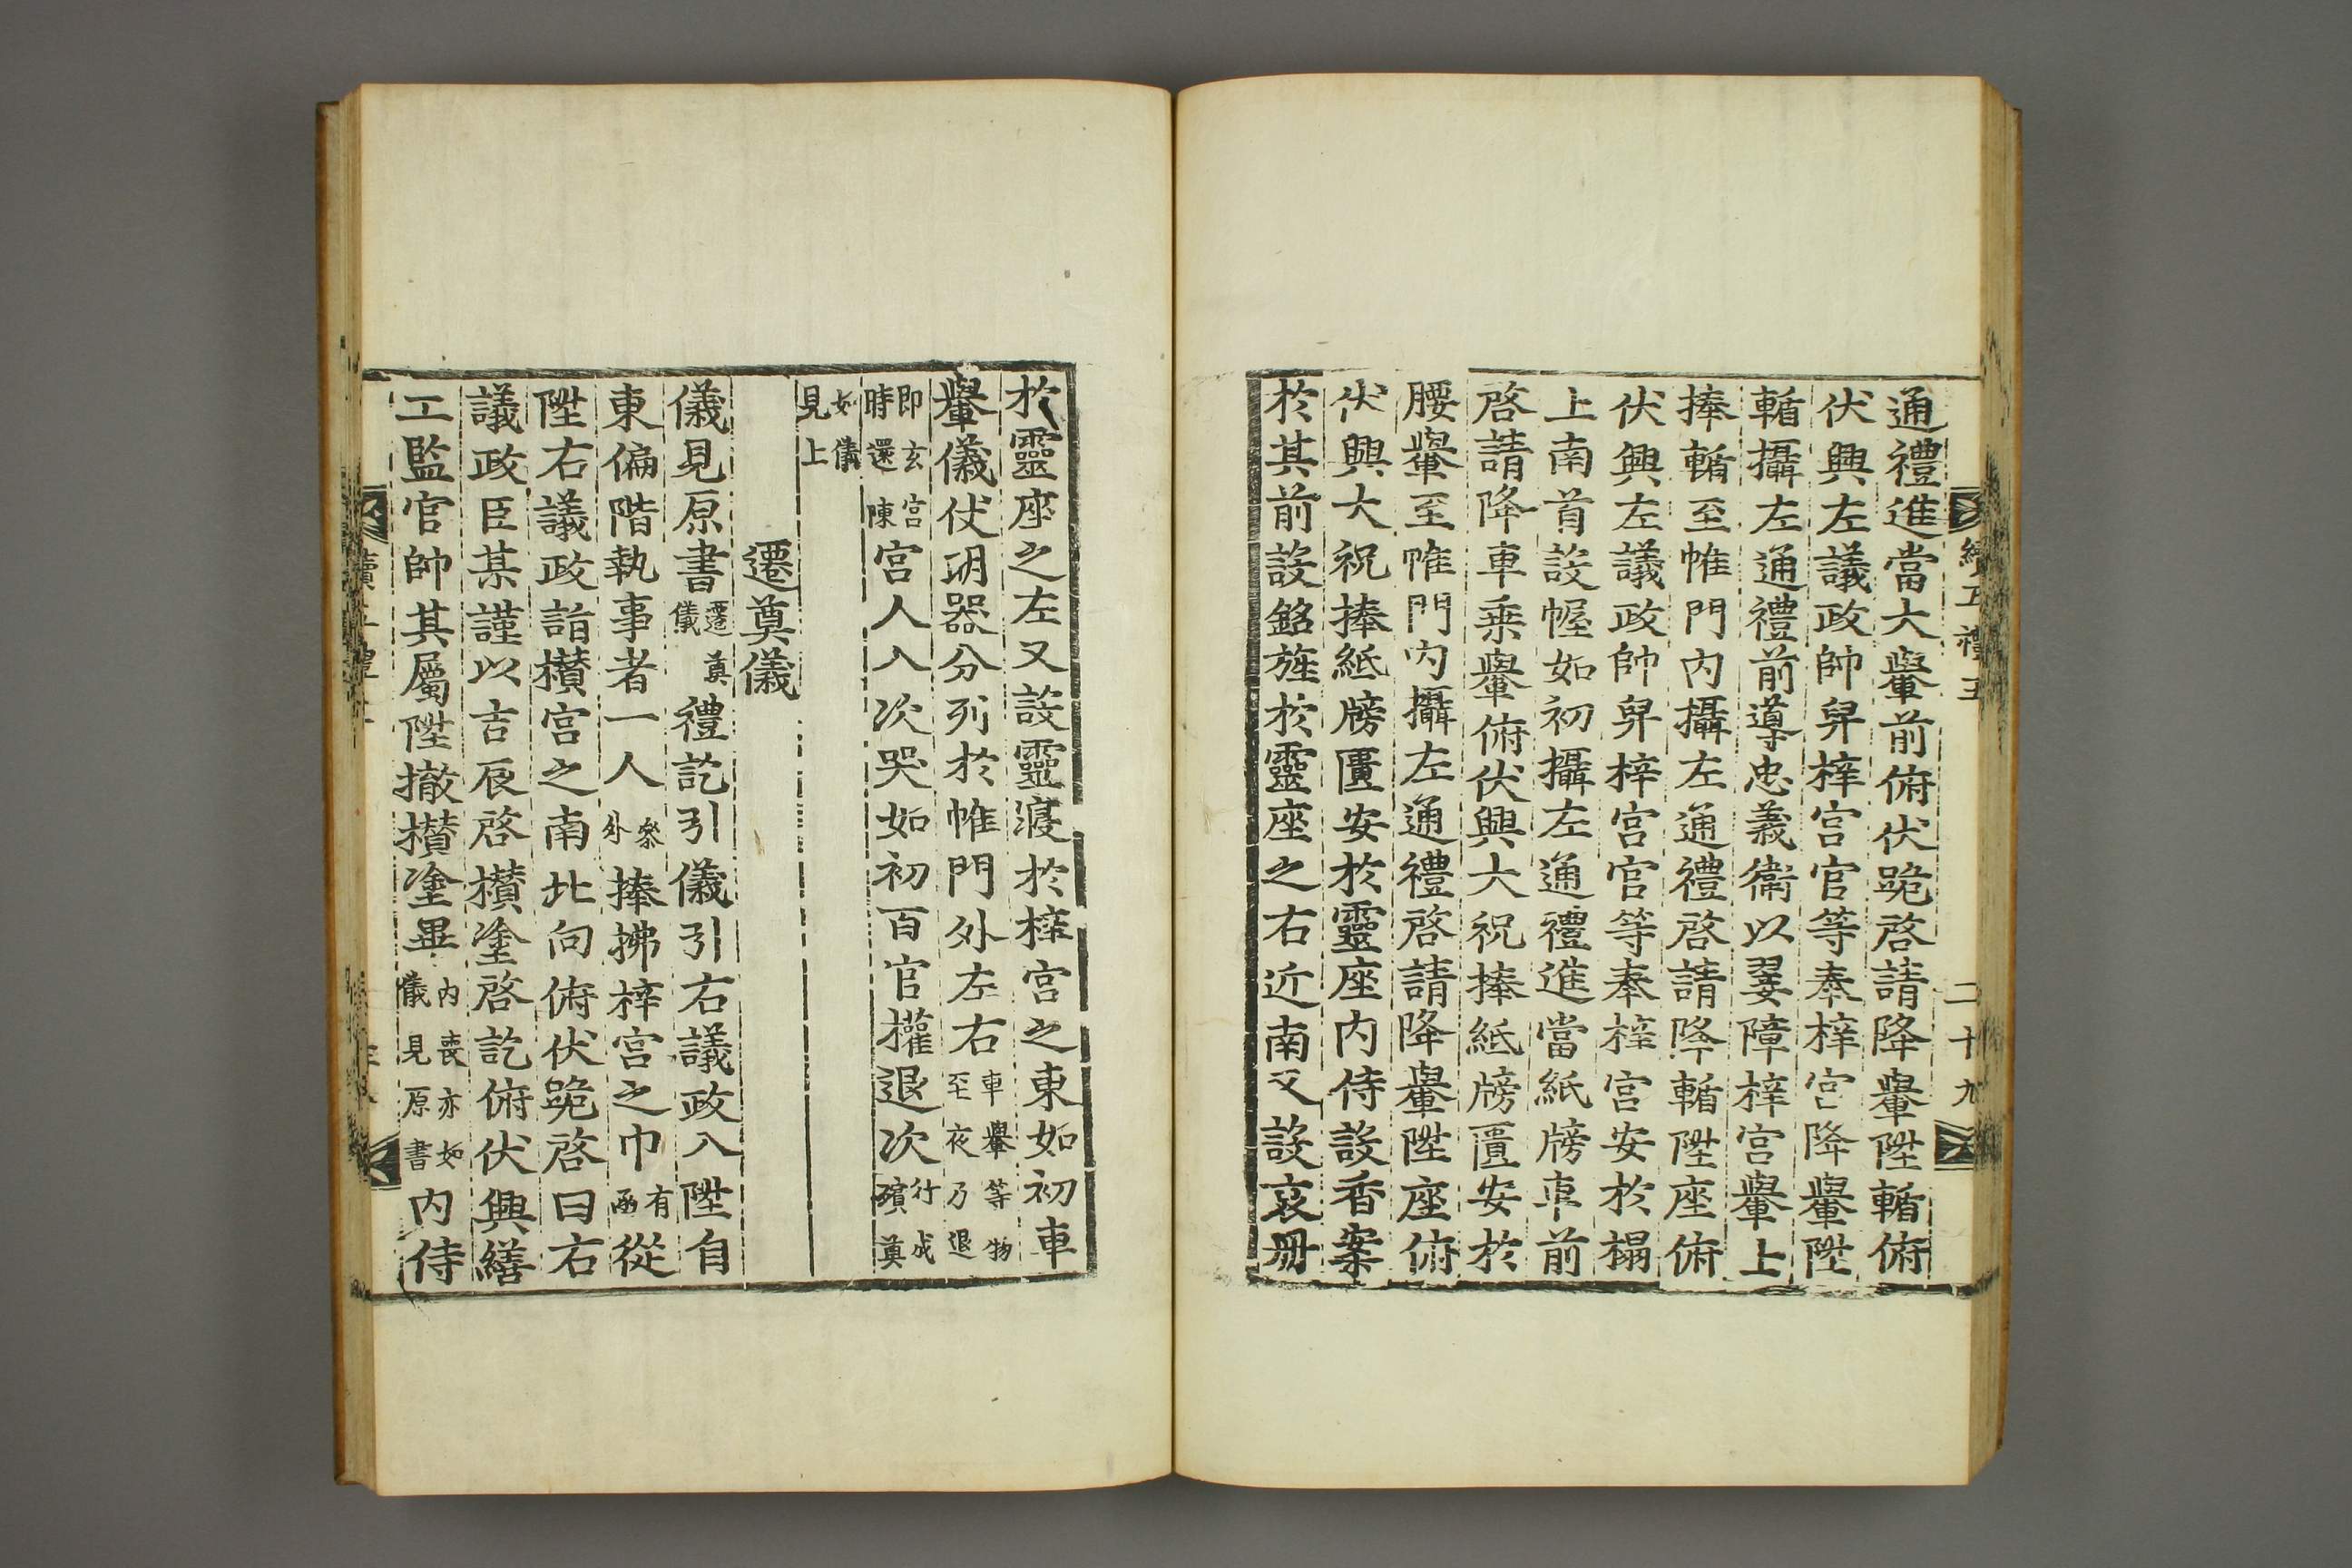 續五禮五
二十九
通禮進當大轝前俯伏跪啓請降轝陞輴俯
伏興左議政帥舁梓宮官等奉梓宮降轝陞
輴攝左通禮前導忠義衛以翣障梓宮轝上
捧輴至帷門內攝左通禮啓請降輴陞座俯
伏興左議政帥舁梓宮官等奉梓宮安於榻
上南首設幄如初攝左通禮進當紙牓車前
啓請降車乘轝俯伏興大祝捧紙牓匱安於
腰轝至帷門內攝左通禮啓請降轝陞座俯
伏興大祝捧紙牓匱安於靈座內侍設香案
於其前設銘旌於靈座之右近南又設哀冊
於靈座之左又設靈寢於梓宮之東如初車
轝儀仗明器分列於帷門外左右車轝等物
至夜乃退
即玄宮
時還陳宮人入次哭如初百官權退次行成
殯奠
如儀
見上
遷奠儀
儀見原書遷奠
儀禮訖引儀引右議政入陞自
東偏階執事者一人叅
外捧拂梓宮之巾有
函從
陞右議政詣欑宮之南北向俯伏跪啓曰右
議政臣某謹以吉辰啓欑塗啓訖俯伏興繕
工監官帥其屬陞撤欑塗畢內喪亦如
儀見原書內侍